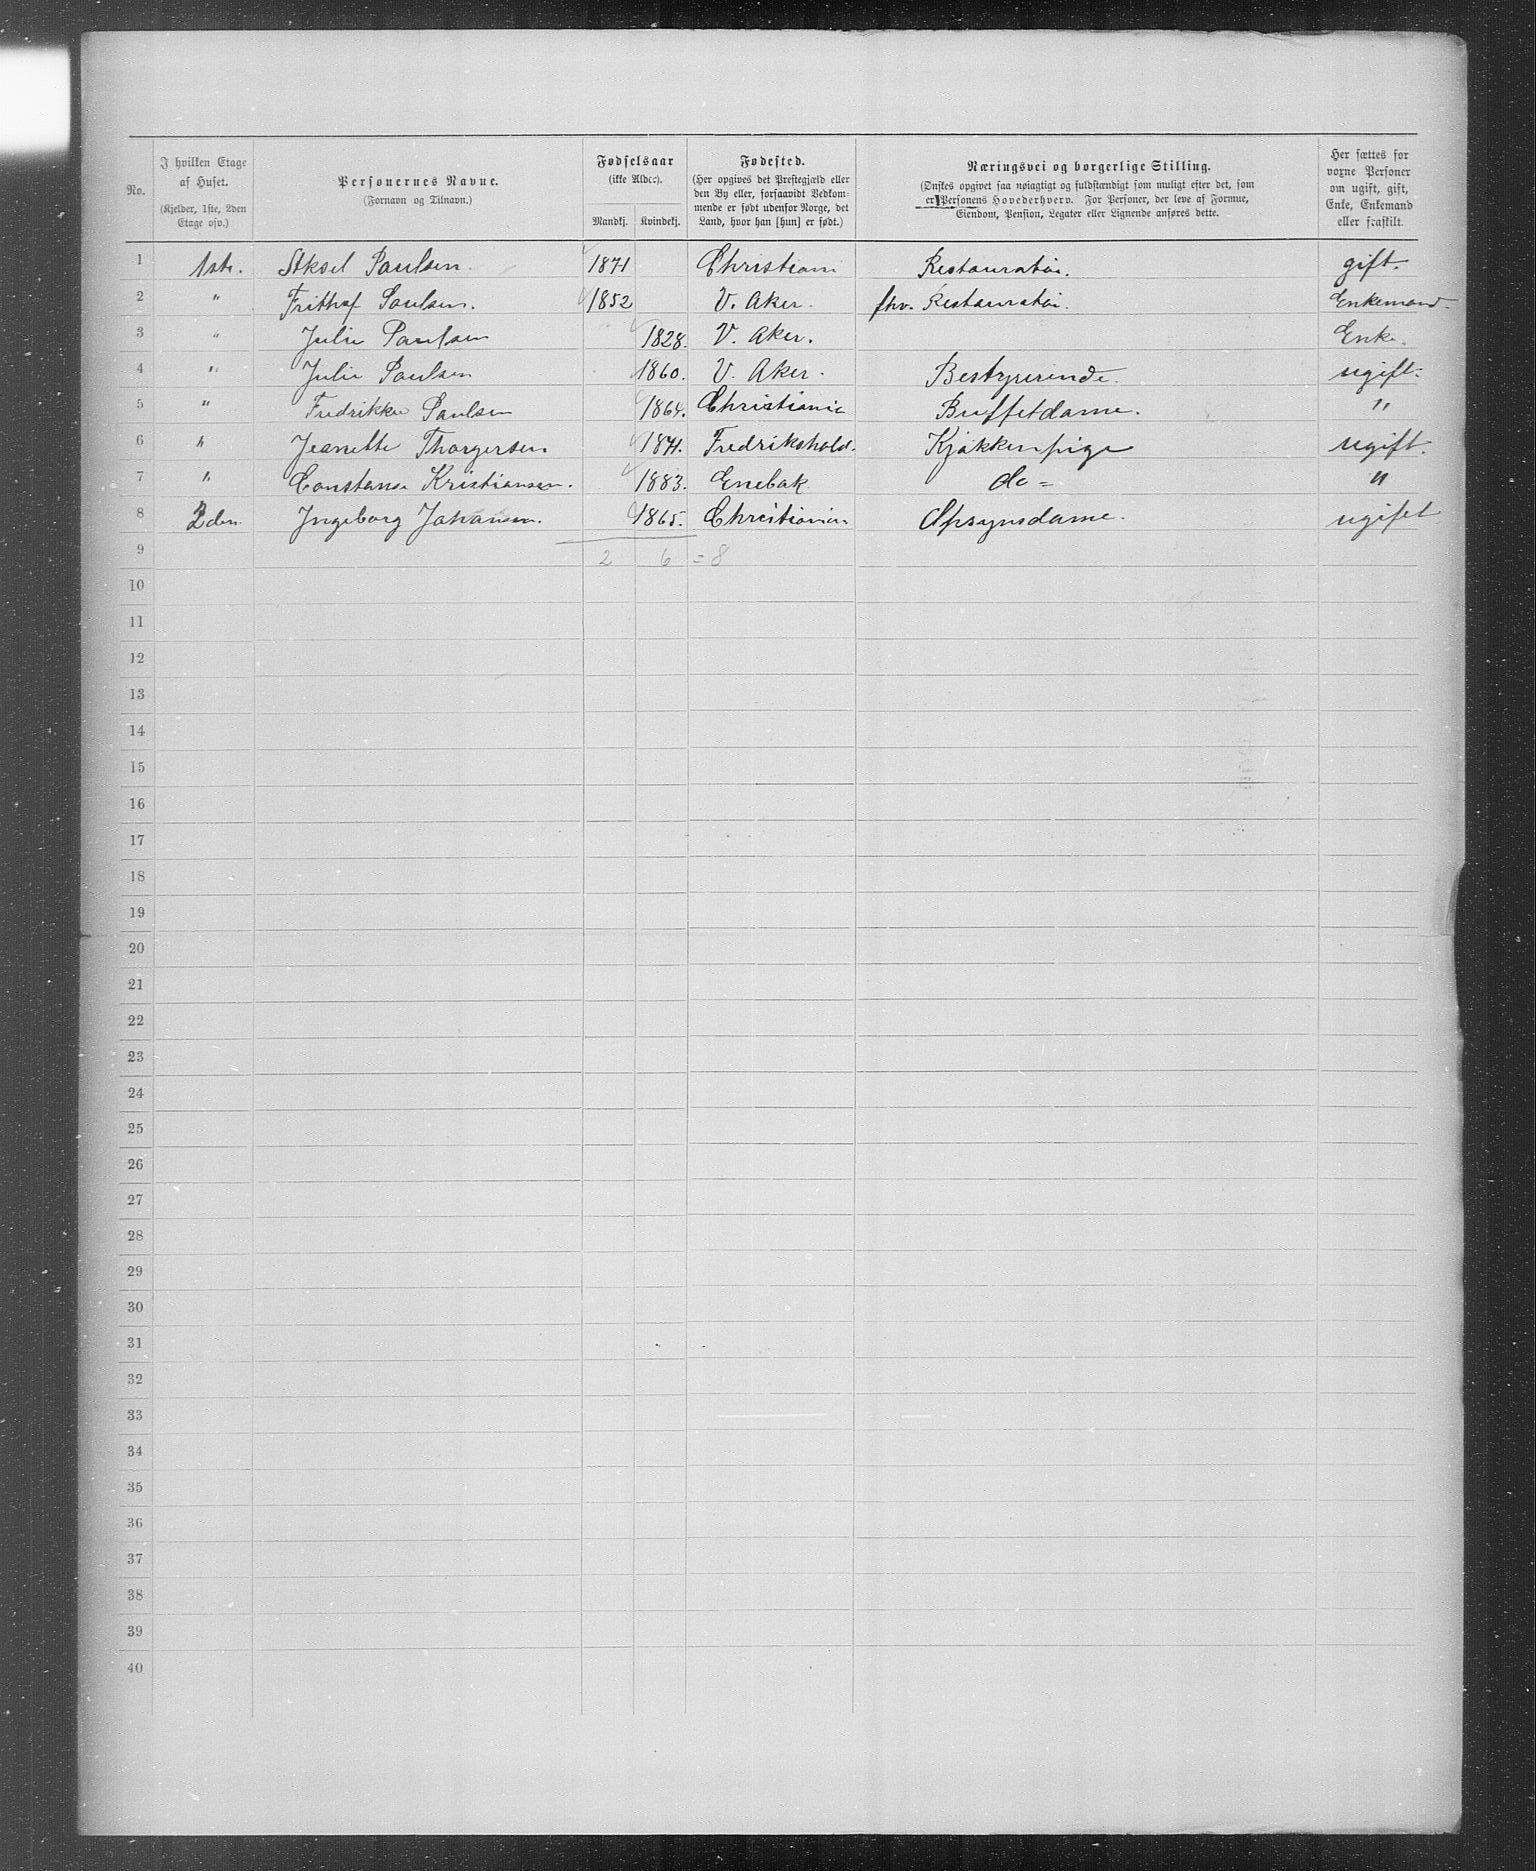 No. | I hvilken Etage af Huset. (Kjelder, 1ste, 2den Etage osv.) | Personernes Navne. (Fornavn og Tilnavn.) | Fødselsaar (ikke Alder). Mandkj. | Kvindekj. | Fødested. (Her opgives det Prestegjæld eller den By eller, forsaavidt Vedkommende er født udenfor Norge, det Land, hvor han [hun] er født.) | Næringsvei og borgerlige Stilling. (Ønskes opgivet saa nøiagtigt og fuldstændigt som muligt efter det, som er Personens Hovederhverv. For Personer, der leve af Formue, Eiendom, Pension, Legater eller Lignende anføres dette. | Her sættes for voxne Personer om ugift, gift, Enke, Enkemand eller fraskilt.
1 | 1ste. | Aksel Paulsen. | 1871 | | Christiani | Restauratør. | gift.
2 | " | Frithof Paulsen. | 1852 | | V. Aker. | fhv. Restauratør. | Enkemand.
3 | " | Julie Paulsen | | 1828. | V. Aker. | | Enke.
4 | " | Julie Paulsen | | 1860. | V. Aker. | Bestyrerinde. | ugift.
5 | " | Fredrikke Paulsen | | 1864. | Christiania | Buffetdame. | "
6 | " | Jeanette Thorgersen | | 1871. | Fredrikshald. | Kjøkkenpige | ugift.
7 | " | Constanse Kristiansen. | | 1883. | Enebak | do = | "
8 | 2den | Ingeborg Johansen. | | 1865. | Christiania | Opsynsdame. | ugift
9 | | | 2 | 6 | = 8
10
11
12
13
14
15
16
17
18
19
20
21
22
23
24
25
26
27
28
29
30
31
32
33
34
35
36
37
38
39
40